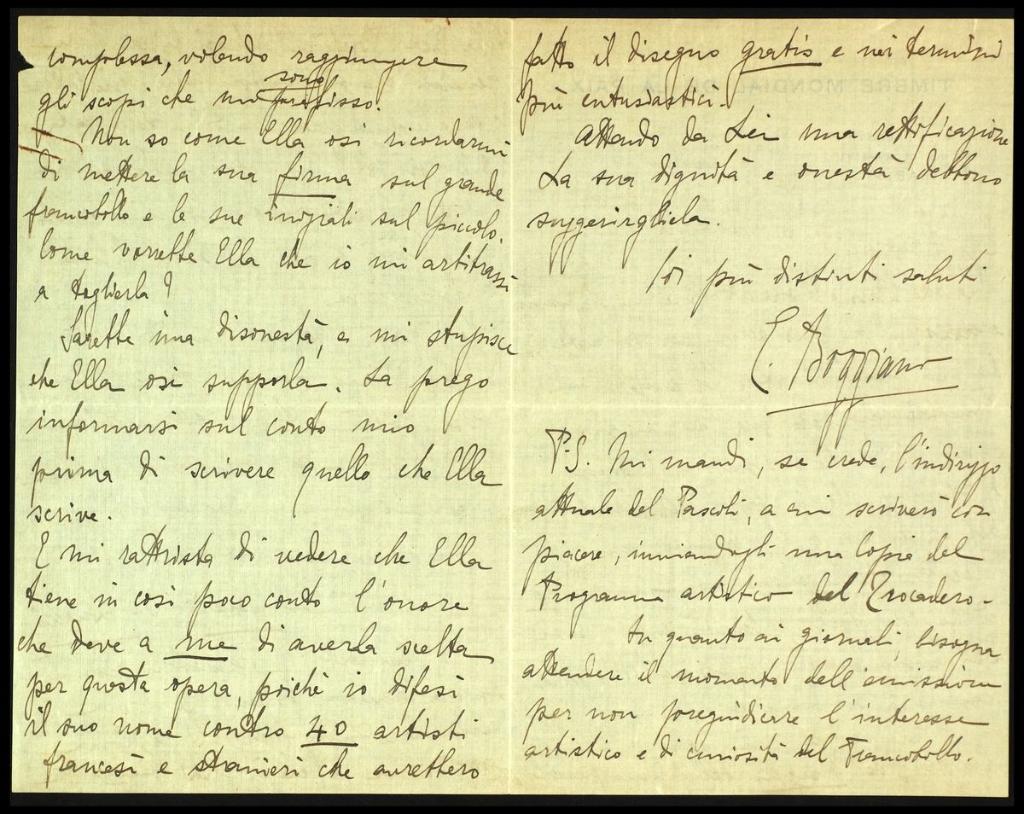 complessa, volendo raggiungere
gli scopi che mi sono prefisso.
Non so come Ella osi ricordarmi
di mettere la sua firma sul grande
francobollo e le sue iniziali sul piccolo.
Come vorrebbe Ella che io mi arbitrassi
a toglierla?
Sarebbe una disonestà, e mi stupisce
che Ella osi supporla. La prego
informarsi sul conto mio
prima di scrivere quello che Ella
scrive.
E mi rattrista di vedere che Ella
tiene in così poco conto l'onore
che deve a me di averla scelta
per questa opera, poichè io difesi
il suo nome contro 40 artisti
francesi e stranieri che avrebbero
fatto il disegno gratis e nei termini
più entusiastici.
Attendo da Lei una rettificazione
La sua dignità e onestà debbono
suggerirgliela.
Coi più distinti saluti
E. Boggiano
P.S. Mi mandi, se crede, l'indirizzo
attuale del Pascoli, a cui scriverò con
piacere, inviandogli una copia del
Programma artistico del Trocadero -
In quanto ai giornali, bisogna
attendere il momento dell'emissione
per non pregiudicare l'interesse
artistico e di curiosità del Francobollo.
TIMBRE MONDIAL